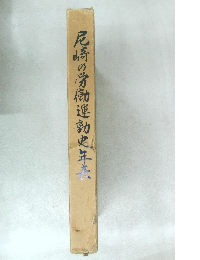 尼崎の労働運動史年表